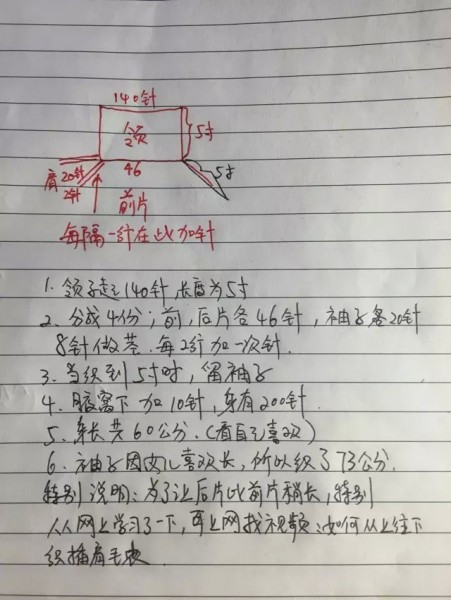 140针
领
5寸
46
5寸
肩 20针
2针
前片
每隔一针在此加针
1. 领子起140针,长度为5寸
2. 分成4份;前,后片各46针,袖子各20针
8针做茎.每2针加一次针.
3. 当织到5寸时,留袖子
4. 腋窝下加10针,身有200针.
5. 身长共60公分.(看自己喜欢)
6. 袖子因女儿喜欢长,所以织了73公分.
特别说明:为了让后片比前片稍长,特别
从网上学习了一下,可上网找视频:如何从上往下
织插肩毛衣.